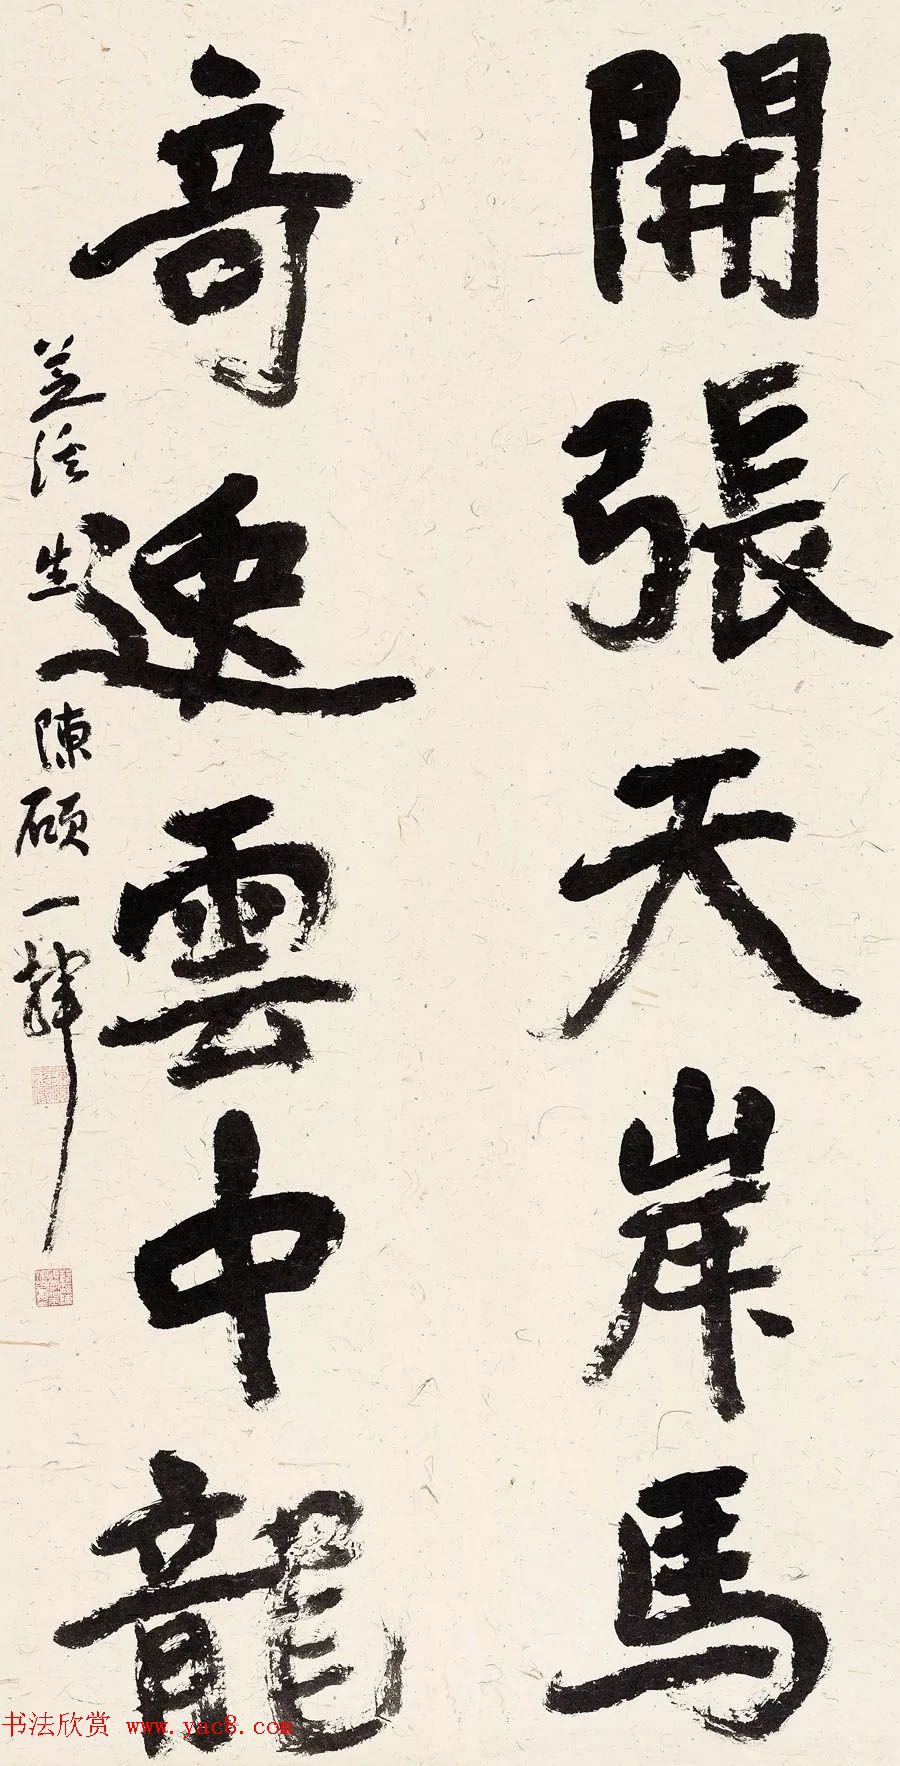 開張天岸馬
奇逸雲中龍
芝溪生陳碩一揮
书法欣赏 www.yac8.com